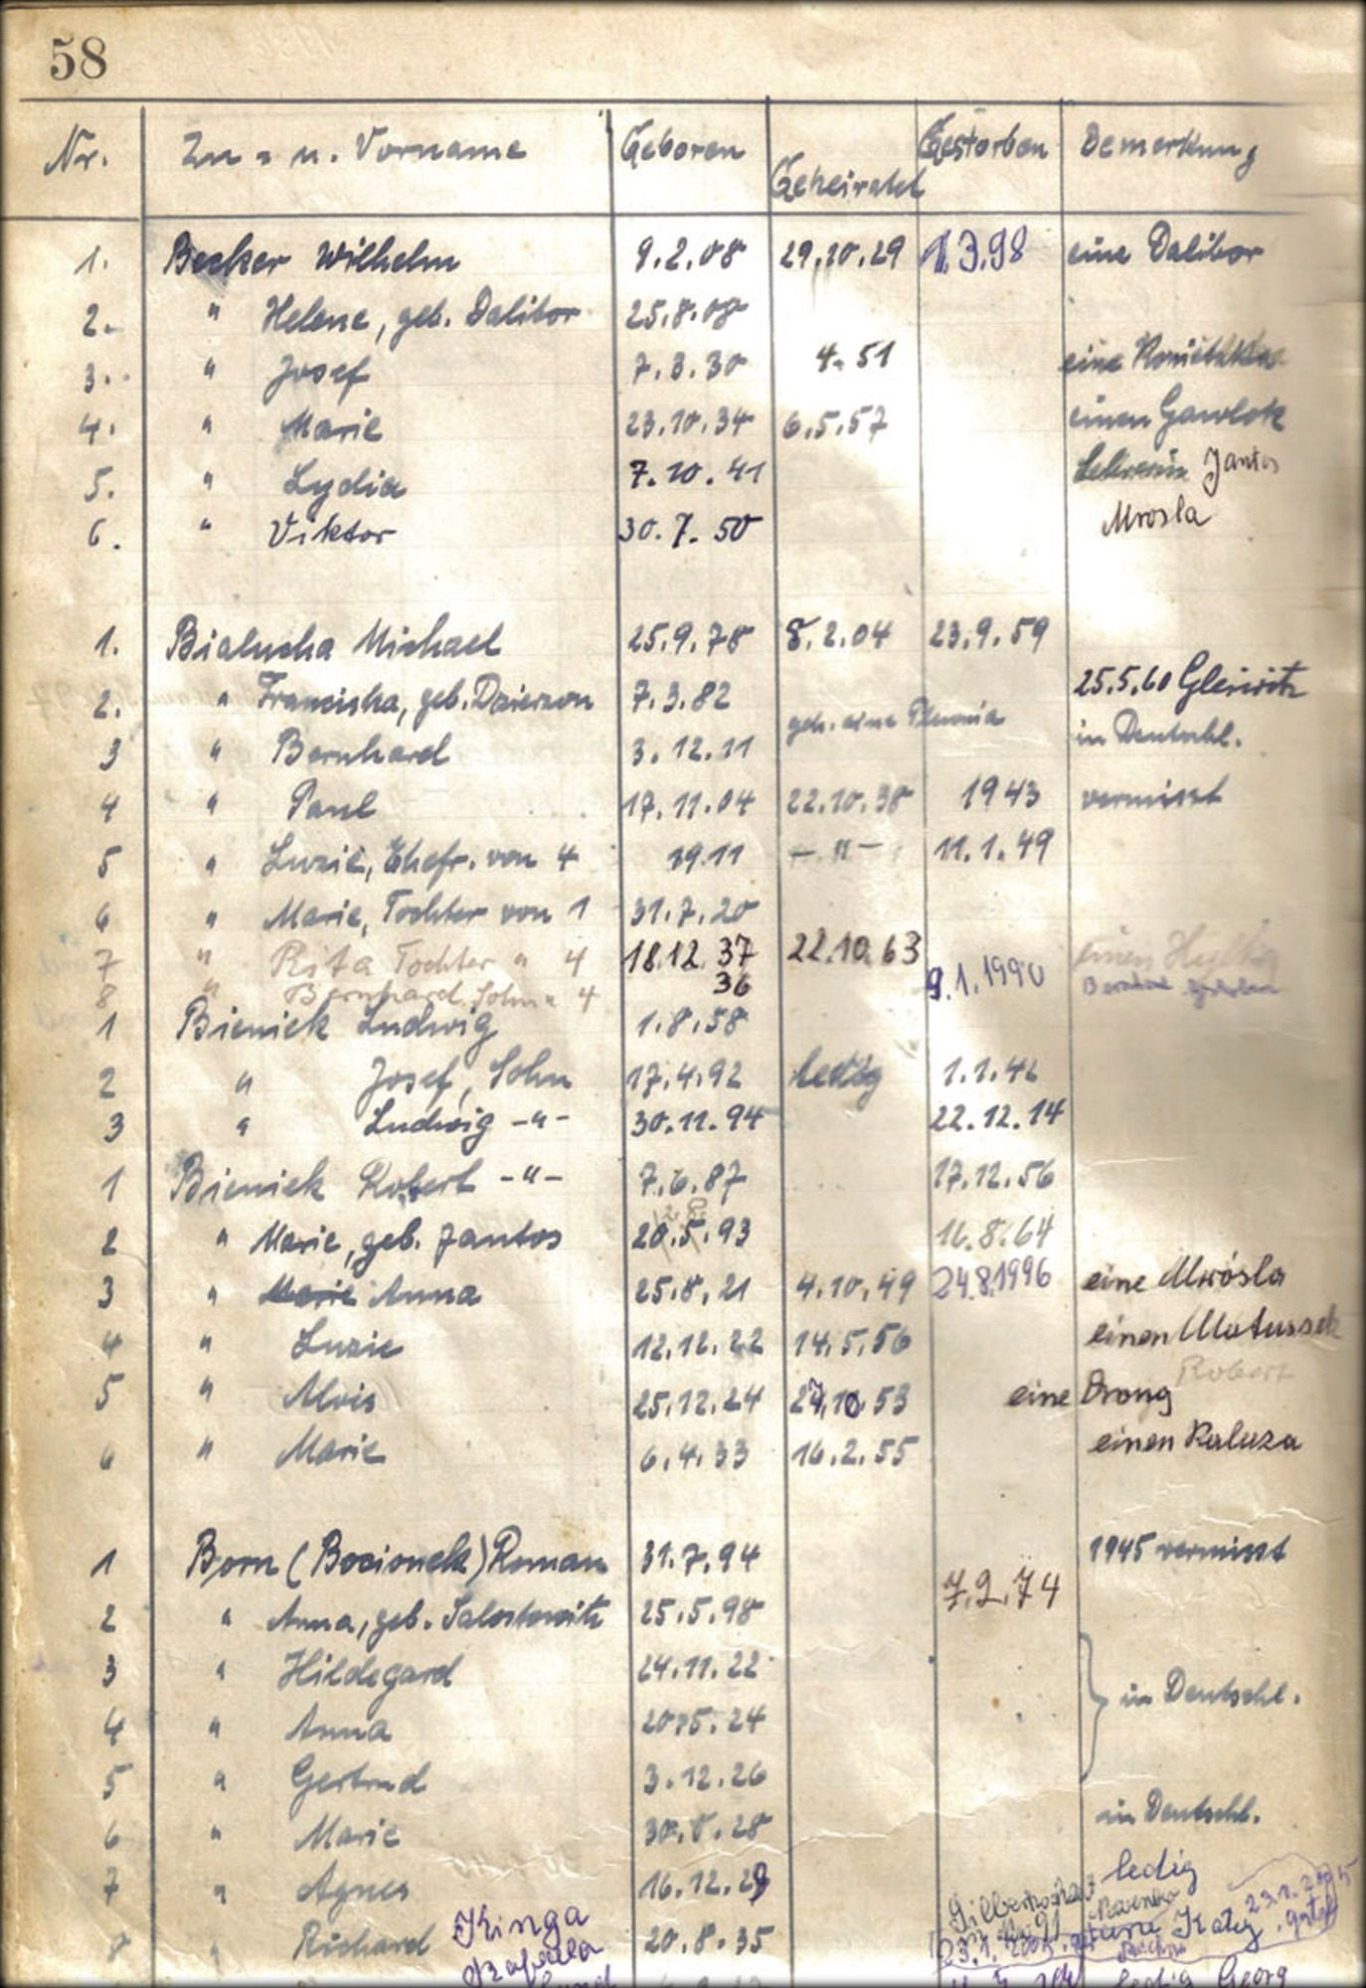 58
Nr. Zu= u. Vorname Geboren Geheiratet Gestorben Bemerkung
1. Becker Wilhelm 9.2.08 29.10.29 1.3.98 eine Dalibor
2. " Helene, geb. Dalibor 25.8.08
3. " Josef 7.3.30 4.51 eine
4. " Marie 23.10.34 6.5.57 einen Gawlok
5. " Lydia 7.10.41 Lehrerin Jantos
6. " Viktor 30.7.50 Mrosla
1. Bialucha Michael 25.9.78 8.2.04 23.9.59
2. " Franziska, geb. Dzierzon 7.3.82 25.5.60 Gleiwitz
3 " Bernhard 3.12.11 geh. eine in Deutschl.
4 " Paul 17.11.04 22.10.38 1943 vermisst
5 " Luzie, Ehefr. von 4 1911 -"- 11.1.49
6 " Marie, Tochter von 1 31.7.20
7 " Rita Tochter " 4 18.12.37 22.10.63 einen
8 " Bernhard Sohn " 4 36 9.1.1990
1 Bieniek Ludwig 1.8.58
2 " Josef, Sohn 17.4.92 ledig 1.1.42
3 " Ludwig -"- 30.11.94 22.12.14
1 Bieniek Robert -"- 7.6.87 17.12.56
2 " Marie, geb. Jantos 20.5.93 16.8.64
3 " Marie Anna 25.8.21 4.10.49 24.8.1996 eine Mrósla
4 " Luzie 12.12.22 14.5.56 einen Matussek
Robert
5 " Alois 25.12.24 27.10.53 eine Drong
6 " Marie 6.4.33 16.2.55 einen Kaluza
1 Born (Bocionek) Roman 31.7.94 1945 vermisst
2 " Anna, geb. 25.5.98 7.2.74
3 " Hildegard 24.11.22
4 " Anna 20.5.24 in Deutschl.
5 " Gertrud 3.12.26
6 " Marie 30.8.28 in Deutschl.
7 " Agnes 16.12.29 ledig
8 " Richard 20.8.35
Kinga
ledig Georg